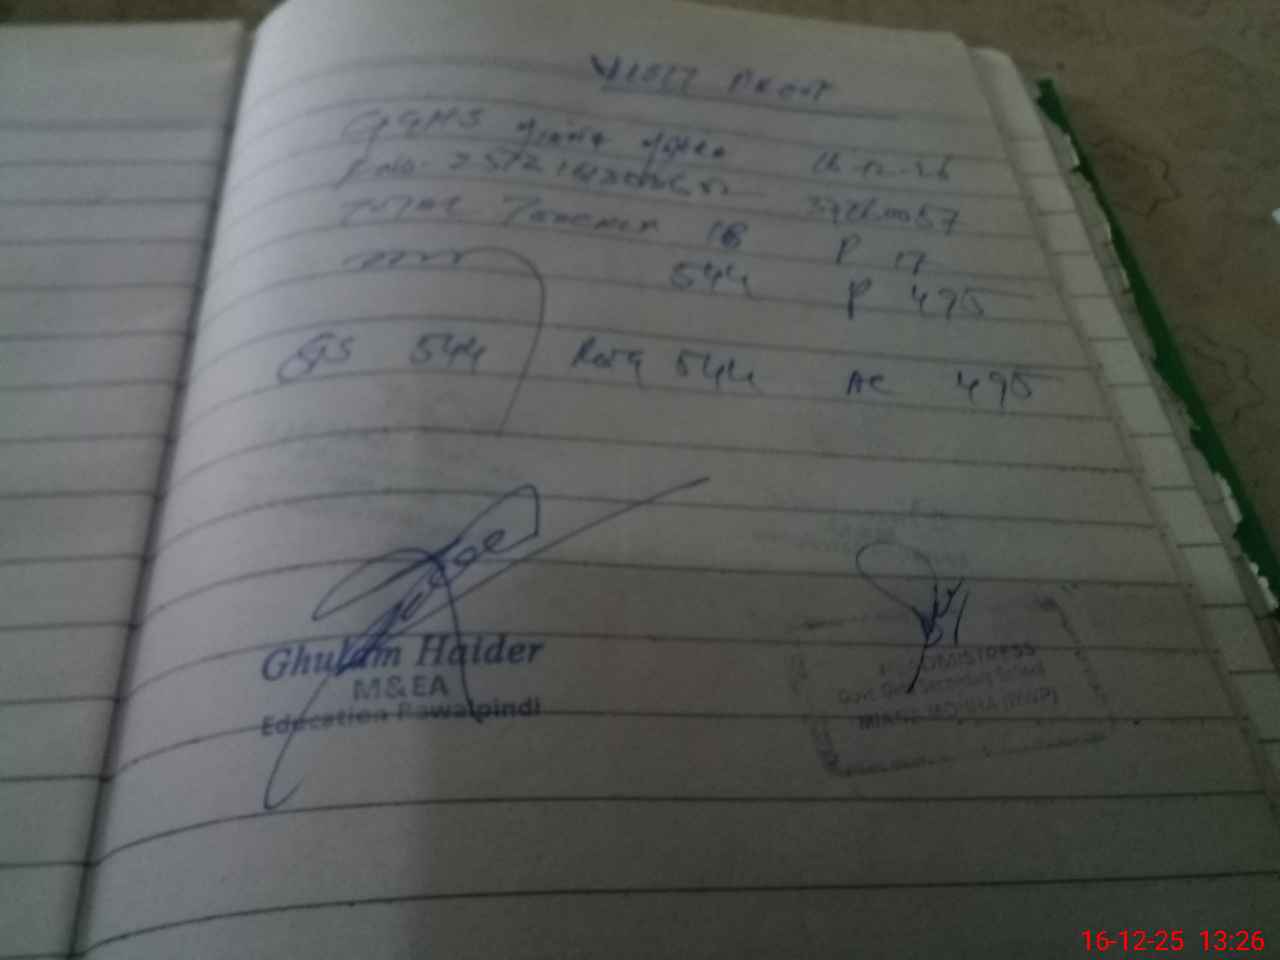 VISIT PROOF
GGHS Miana Mohra 16-12-25
37260057
Total Teacher 18 P 17
544 P 495
GS 544 Reg 544 AC 495
Ghulam Haider
M&EA
Education Rawalpindi
HEADMISTRESS
Govt. Girls Secondary School
MIANA MOHRA (RWP)
16-12-25 13:26